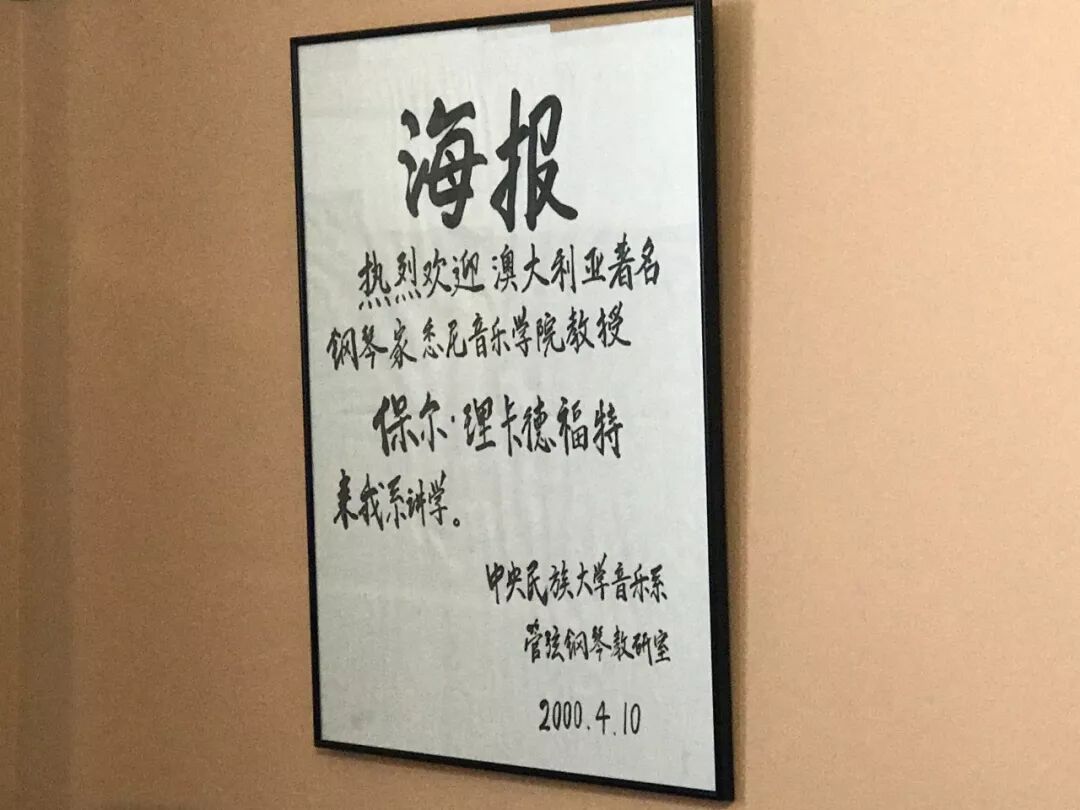 海报
热烈欢迎澳大利亚著名
钢琴家悉尼音乐学院教授
保尔·理卡德福特
来我系讲学。
中央民族大学音乐系
管弦钢琴教研室
2000.4.10